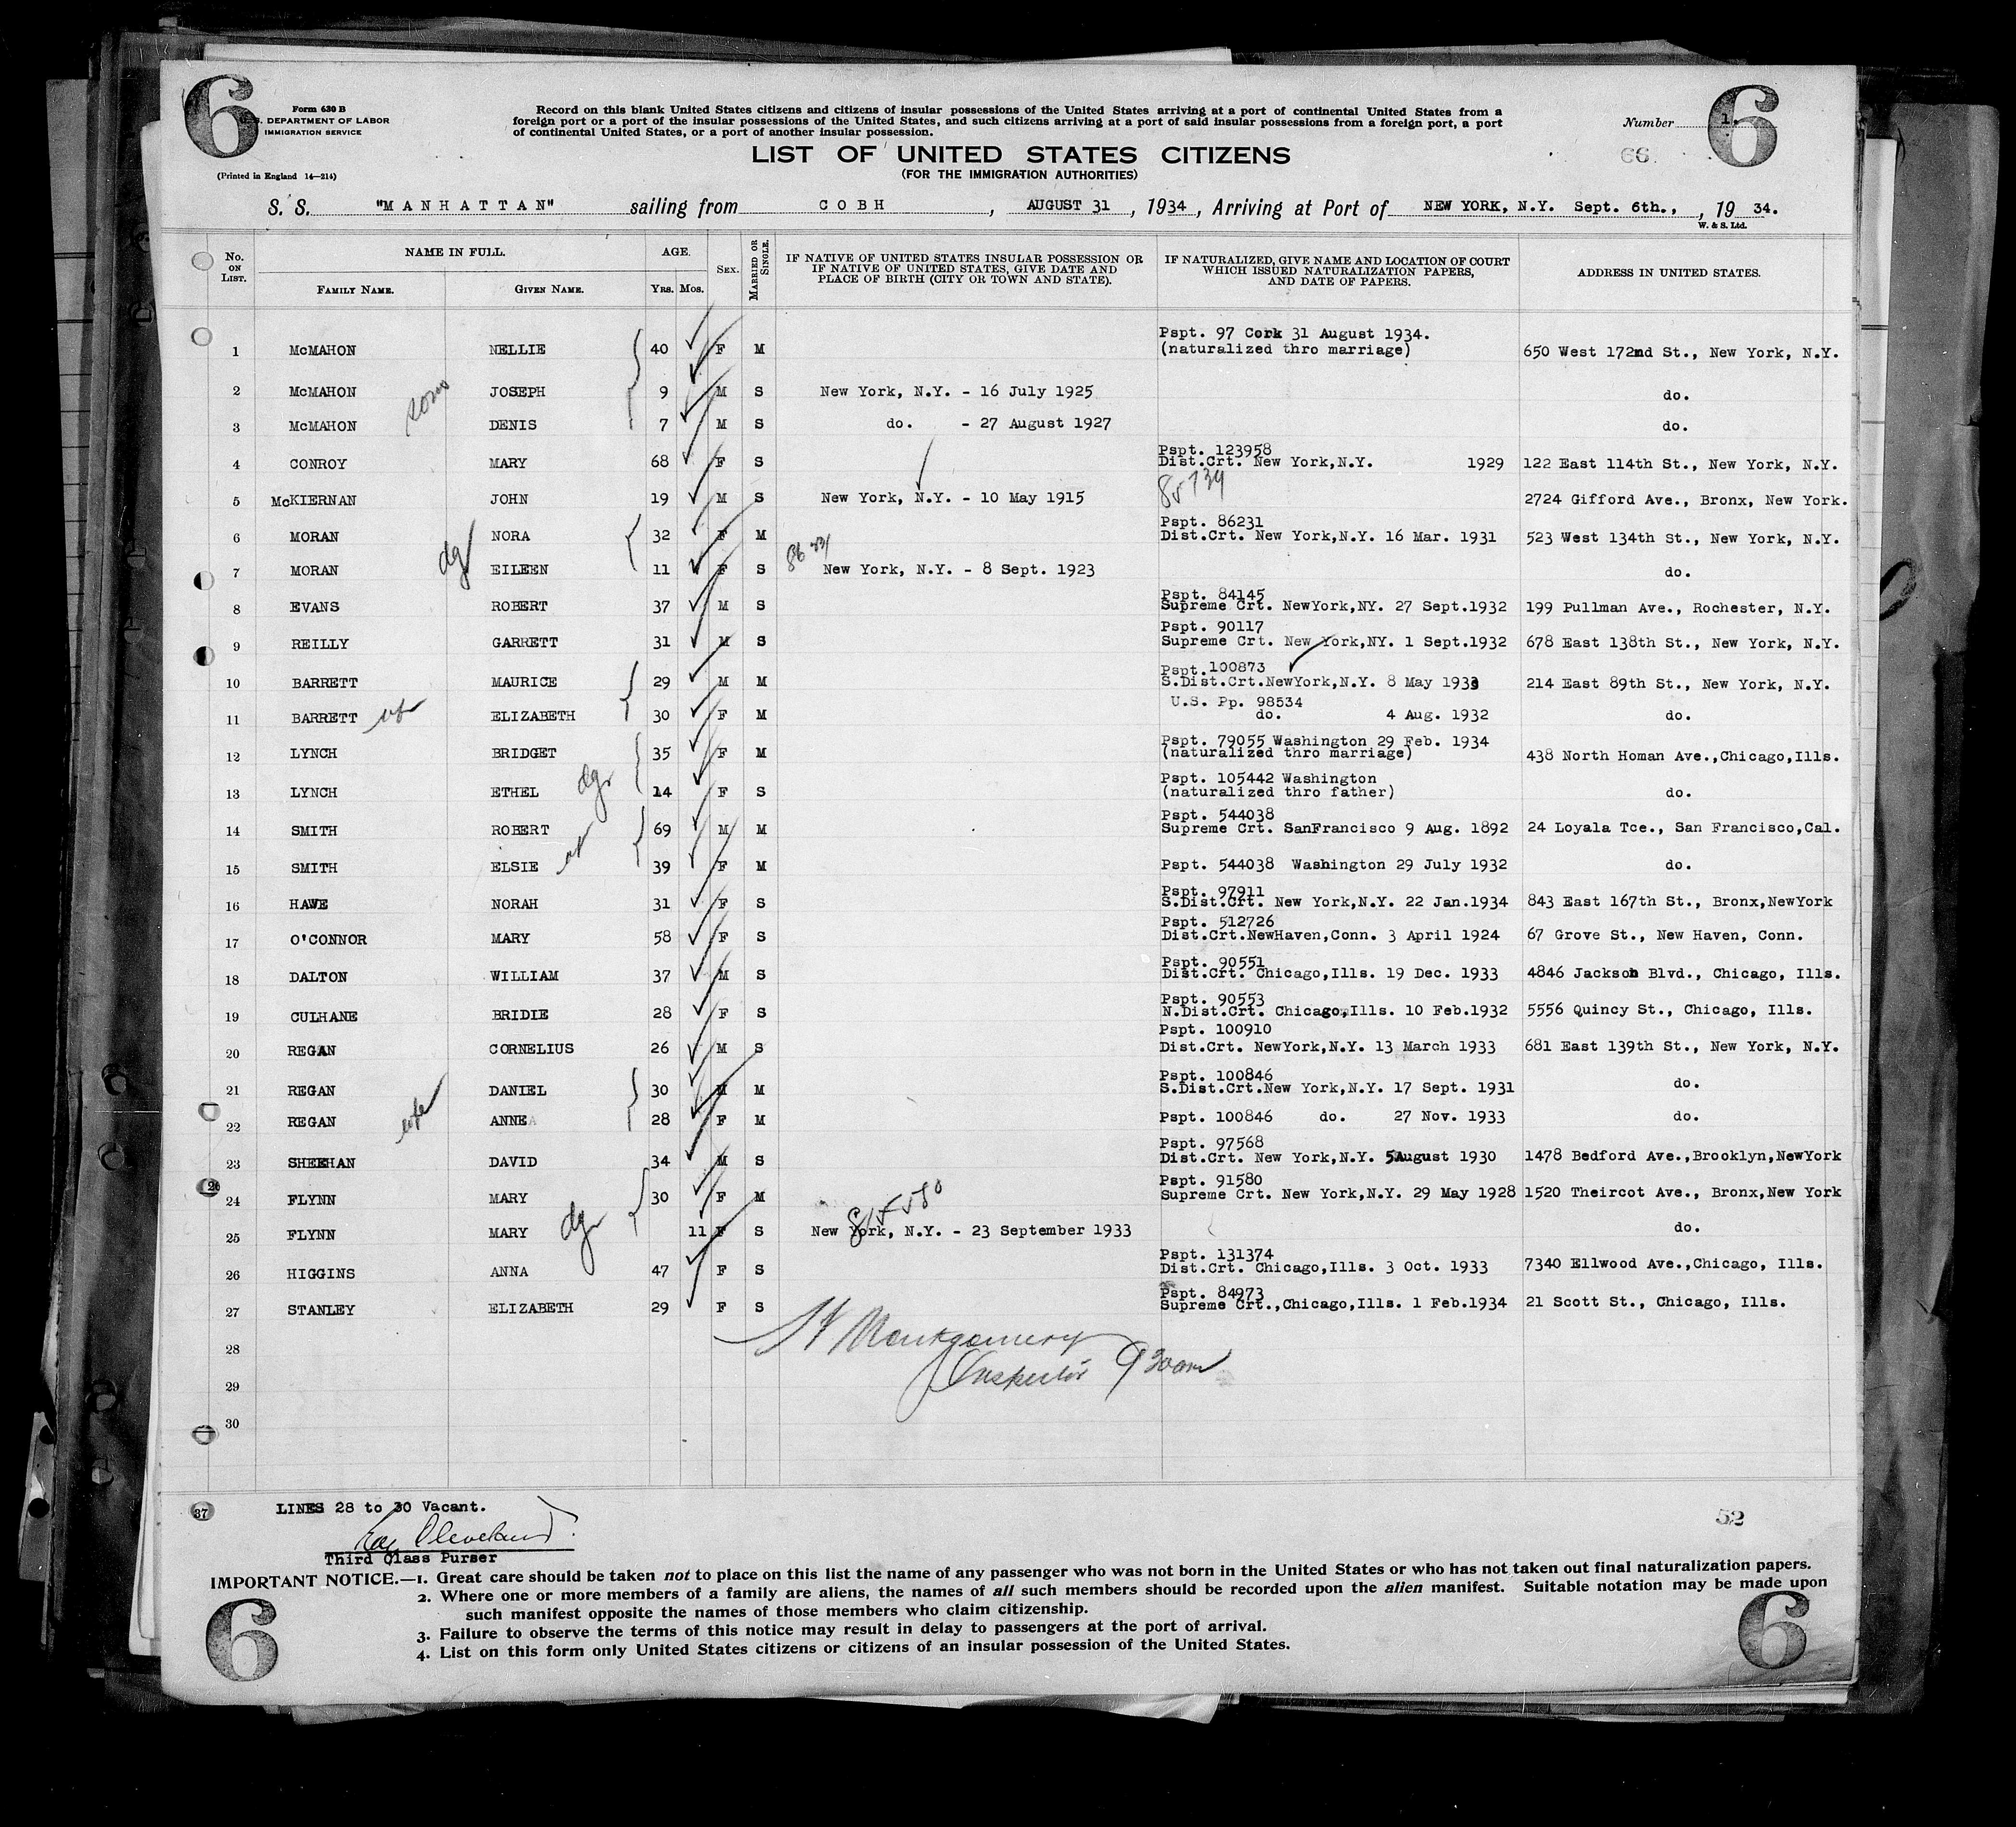 6
Form 630 B
U. S. DEPARTMENT OF LABOR
IMMIGRATION SERVICE
(Printed in England 14—214)
Record on this blank United States citizens and citizens of insular possessions of the United States arriving at a port of continental United States from a
foreign port or a port of the insular possessions of the United States, and such citizens arriving at a port of said insular possessions from a foreign port, a port
of continental United States, or a port of another insular possession.
Number 1. 6
66
LIST OF UNITED STATES CITIZENS
(FOR THE IMMIGRATION AUTHORITIES)
S. S. "MANHATTAN" sailing from COBH, AUGUST 31, 1934, Arriving at Port of NEW YORK, N.Y. Sept. 6th., , 19 34.
W. & S. Ltd.
No. ON LIST. NAME IN FULL. FAMILY NAME. GIVEN NAME. AGE. YRS. MOS. SEX. MARRIED OR SINGLE. IF NATIVE OF UNITED STATES INSULAR POSSESSION OR IF NATIVE OF UNITED STATES, GIVE DATE AND PLACE OF BIRTH (CITY OR TOWN AND STATE). IF NATURALIZED, GIVE NAME AND LOCATION OF COURT WHICH ISSUED NATURALIZATION PAPERS, AND DATE OF PAPERS. ADDRESS IN UNITED STATES.
Pspt. 97 Cork 31 August 1934.
1 McMAHON NELLIE 40 F M (naturalized thro marriage) 650 West 172nd St., New York, N.Y.
2 McMAHON sons JOSEPH 9 M S New York, N.Y. - 16 July 1925 do.
3 McMAHON DENIS 7 M S do. - 27 August 1927 do.
Pspt. 123958
4 CONROY MARY 68 F S Dist.Crt. New York,N.Y. 1929 122 East 114th St., New York, N.Y.
5 McKIERNAN JOHN 19 M S New York, N.Y. - 10 May 1915 2724 Gifford Ave., Bronx, New York.
Pspt. 86231
6 MORAN NORA 32 F M Dist.Crt. New York,N.Y. 16 Mar. 1931 523 West 134th St., New York, N.Y.
7 MORAN EILEEN 11 F S New York, N.Y. - 8 Sept. 1923 do.
Pspt. 84145
8 EVANS ROBERT 37 M S Supreme Crt. NewYork,NY. 27 Sept.1932 199 Pullman Ave., Rochester, N.Y.
Pspt. 90117
9 REILLY GARRETT 31 M S Supreme Crt. New York,NY. 1 Sept.1932 678 East 138th St., New York, N.Y.
Pspt. 100873
10 BARRETT MAURICE 29 M M S.Dist.Crt.NewYork,N.Y. 8 May 1933 214 East 89th St., New York, N.Y.
U.S. Pp. 98534
11 BARRETT ELIZABETH 30 F M do. 4 Aug. 1932 do.
Pspt. 79055 Washington 29 Feb. 1934
12 LYNCH BRIDGET 35 F M (naturalized thro marriage) 438 North Homan Ave.,Chicago,Ills.
Pspt. 105442 Washington
13 LYNCH ETHEL 14 F S (naturalized thro father) do.
Pspt. 544038
14 SMITH ROBERT 69 M M Supreme Crt. SanFrancisco 9 Aug. 1892 24 Loyala Tce., San Francisco,Cal.
15 SMITH ELSIE 39 F M Pspt. 544038 Washington 29 July 1932 do.
Pspt. 97911
16 HAWE NORAH 31 F S S.Dist.Crt. New York,N.Y. 22 Jan.1934 843 East 167th St., Bronx,NewYork
Pspt. 512726
17 O'CONNOR MARY 58 F S Dist.Crt.NewHaven,Conn. 3 April 1924 67 Grove St., New Haven, Conn.
Pspt. 90551
18 DALTON WILLIAM 37 M S Dist.Crt. Chicago,Ills. 19 Dec. 1933 4846 Jackson Blvd., Chicago, Ills.
Pspt. 90553
19 CULHANE BRIDIE 28 F S N.Dist.Crt. Chicago,Ills. 10 Feb.1932 5556 Quincy St., Chicago, Ills.
Pspt. 100910
20 REGAN CORNELIUS 26 M S Dist.Crt. NewYork,N.Y. 13 March 1933 681 East 139th St., New York, N.Y.
Pspt. 100846
21 REGAN DANIEL 30 M M S.Dist.Crt.New York,N.Y. 17 Sept. 1931 do.
22 REGAN wife ANNE 28 F M Pspt. 100846 do. 27 Nov. 1933 do.
Pspt. 97568
23 SHEEHAN DAVID 34 M S Dist.Crt. New York,N.Y. 5August 1930 1478 Bedford Ave.,Brooklyn,NewYork
Pspt. 91580
24 FLYNN MARY 30 F M Supreme Crt. New York,N.Y. 29 May 1928 1520 Theircot Ave., Bronx,New York
25 FLYNN MARY 11 F S New York, N.Y. - 23 September 1933 do.
Pspt. 131374
26 HIGGINS ANNA 47 F S Dist.Crt. Chicago,Ills. 3 Oct. 1933 7340 Ellwood Ave.,Chicago, Ills.
Pspt. 84973
27 STANLEY ELIZABETH 29 F S Supreme Crt.,Chicago,Ills. 1 Feb.1934 21 Scott St., Chicago, Ills.
28 Montgomery
29 Inspector 930am
30
37
LINES 28 to 30 Vacant.
52
Cleveland
Third Class Purser
IMPORTANT NOTICE.—1. Great care should be taken not to place on this list the name of any passenger who was not born in the United States or who has not taken out final naturalization papers.
2. Where one or more members of a family are aliens, the names of all such members should be recorded upon the alien manifest. Suitable notation may be made upon
such manifest opposite the names of those members who claim citizenship.
3. Failure to observe the terms of this notice may result in delay to passengers at the port of arrival.
4. List on this form only United States citizens or citizens of an insular possession of the United States.
6 6